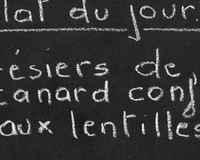 lat du jour.
ésiers de
canard conf
aux lentilles